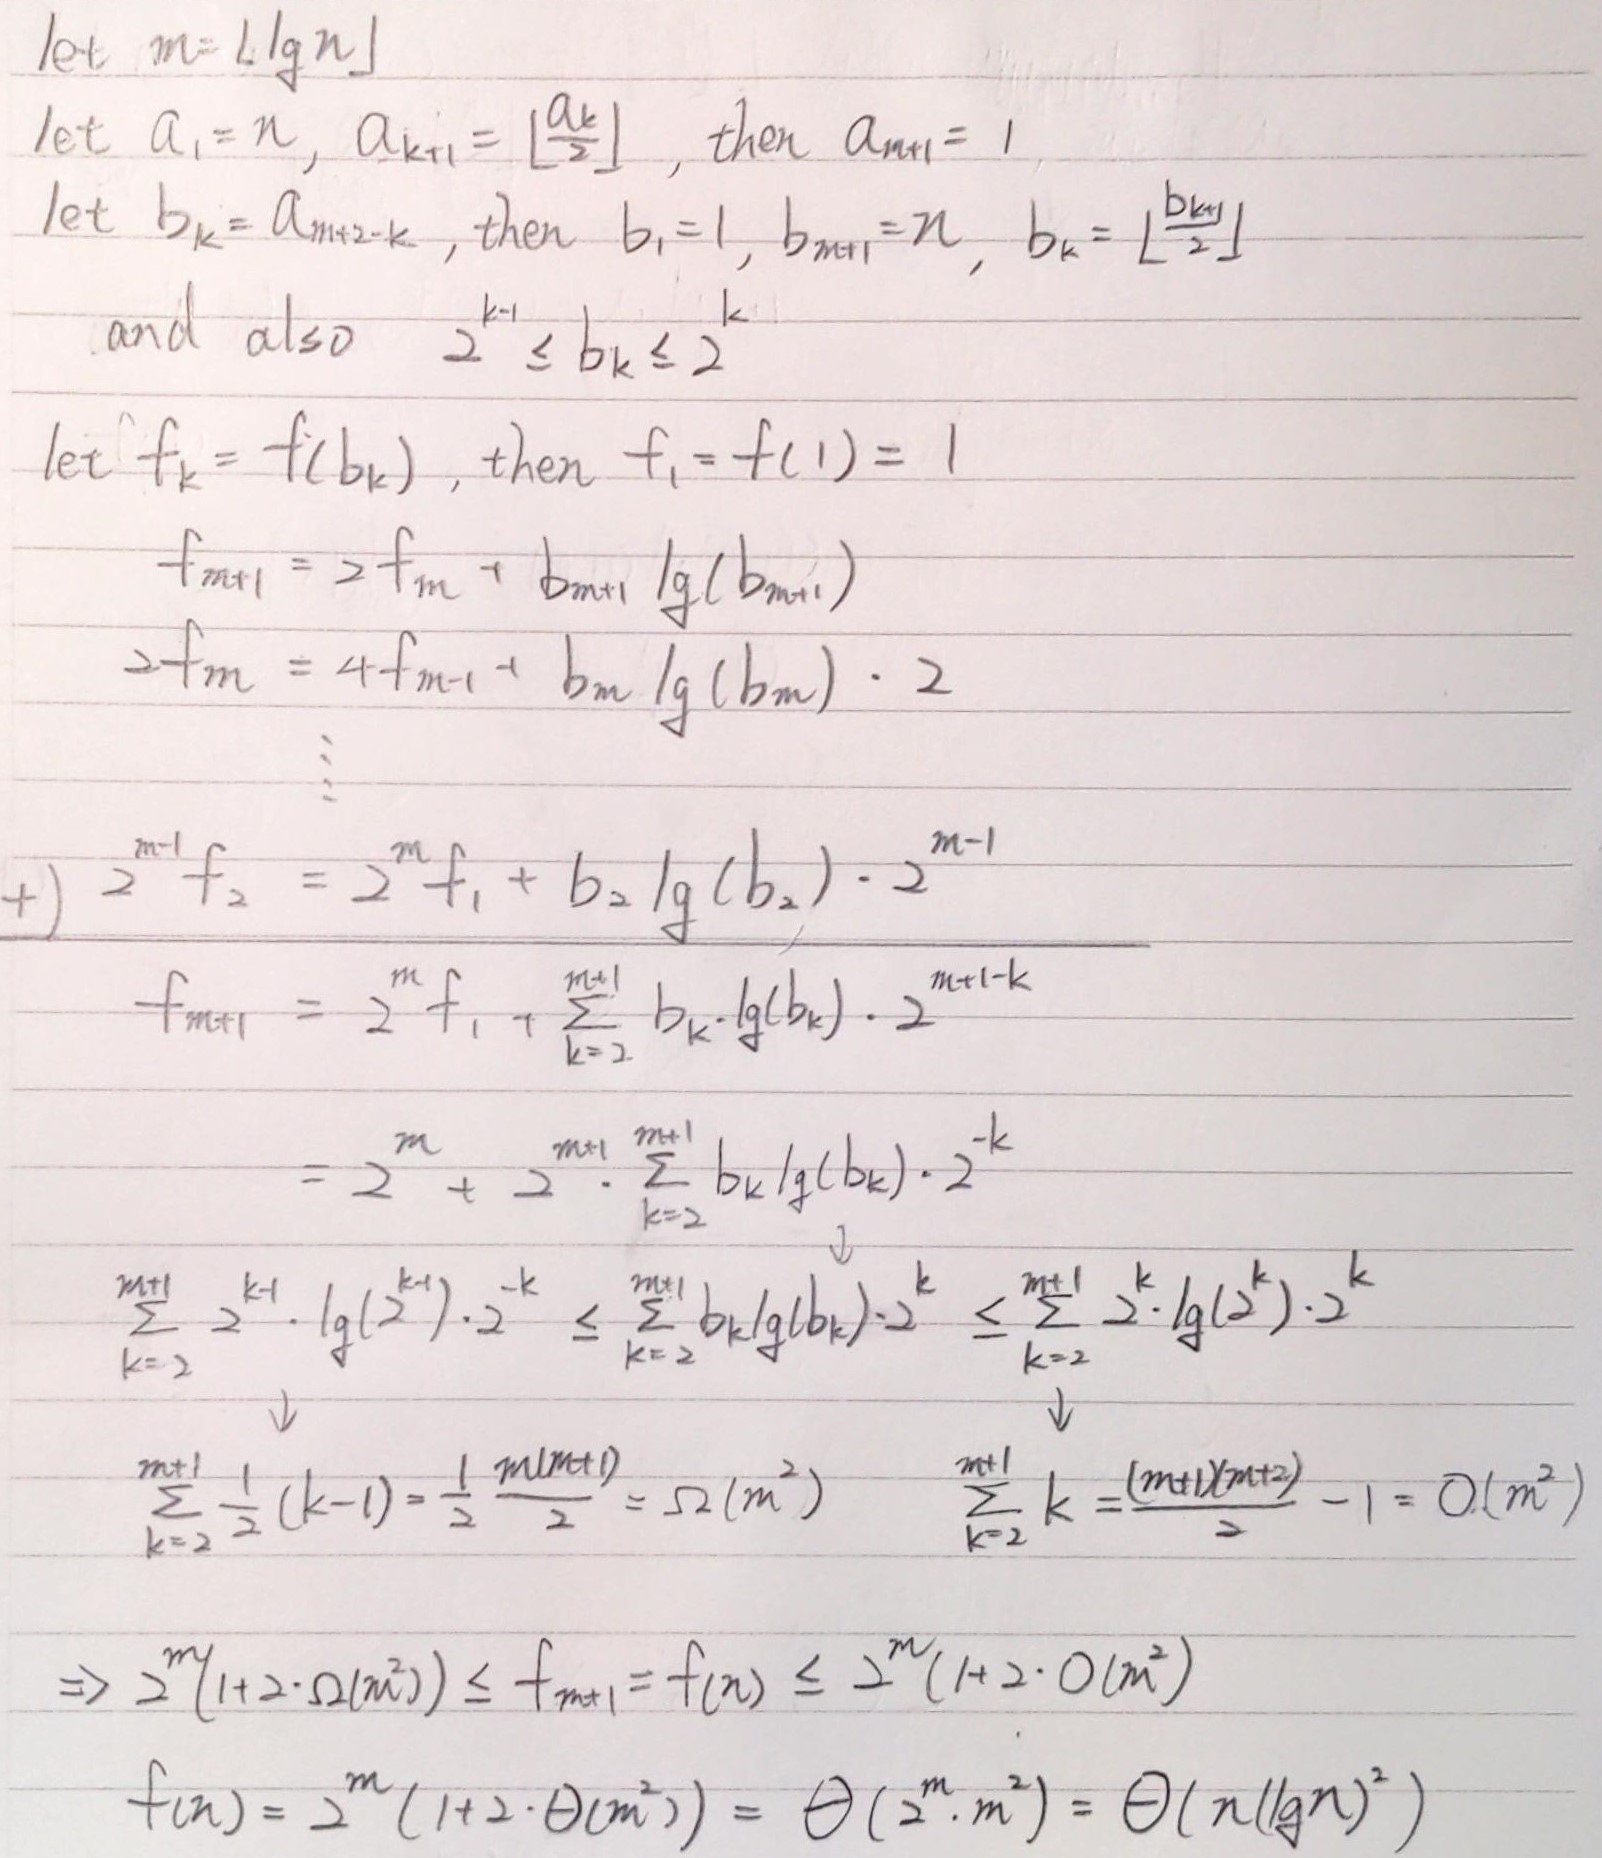 let m = ⌊lg n⌋
let a₁ = n, aₖ₊₁ = ⌊aₖ/2⌋, then aₘ₊₁ = 1
let bₖ = aₘ₊₂₋ₖ, then b₁ = 1, bₘ₊₁ = n, bₖ = ⌊bₖ₊₁/2⌋
and also 2^(k-1) ≤ bₖ ≤ 2^k
let fₖ = f(bₖ), then f₁ = f(1) = 1
fₘ₊₁ = 2fₘ + bₘ₊₁ lg(bₘ₊₁)
2fₘ = 4fₘ₋₁ + bₘ lg(bₘ) · 2
⋮
+) 2^(m-1) f₂ = 2^m f₁ + b₂ lg(b₂) · 2^(m-1)
fₘ₊₁ = 2^m f₁ + Σ_{k=2}^{m+1} bₖ · lg(bₖ) · 2^(m+1-k)
= 2^m + 2^(m+1) · Σ_{k=2}^{m+1} bₖ lg(bₖ) · 2^(-k)
↓
Σ_{k=2}^{m+1} 2^(k-1) · lg(2^(k-1)) · 2^(-k) ≤ Σ_{k=2}^{m+1} bₖ lg(bₖ) · 2^k ≤ Σ_{k=2}^{m+1} 2^k · lg(2^k) · 2^k
↓ ↓
Σ_{k=2}^{m+1} 1/2 (k-1) = 1/2 m(m+1)/2 = Ω(m²) Σ_{k=2}^{m+1} k = (m+1)(m+2)/2 - 1 = O(m²)
⇒ 2^m(1+2·Ω(m²)) ≤ fₘ₊₁ = f(n) ≤ 2^m(1+2·O(m²)
f(n) = 2^m (1+2·Θ(m²)) = Θ(2^m · m²) = Θ(n(lg n)²)